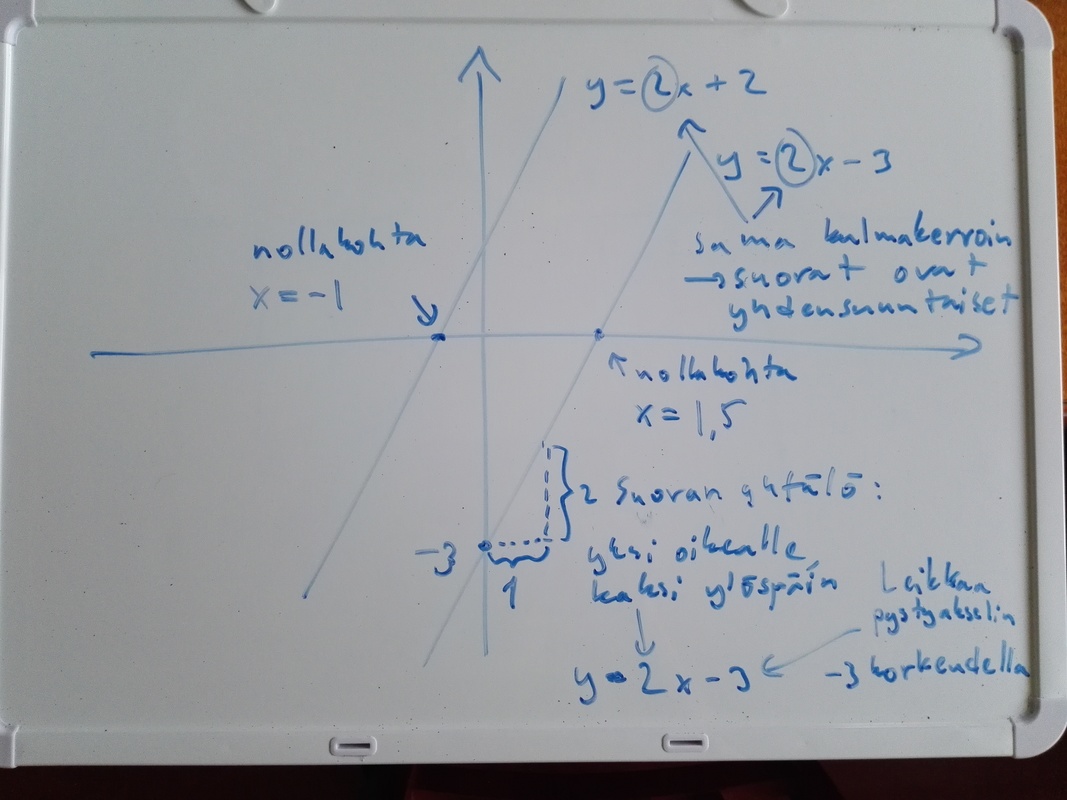 y = 2x + 2
y = 2x - 3
sama kulmakerroin
→ suorat ovat
yhdensuuntaiset
nollakohta
x = -1
nollakohta
x = 1,5
2
-3
1
Suoran yhtälö:
yksi oikealle,
kaksi ylöspäin
y = 2x - 3
Leikkaa
pystyakselin
-3 korkeudella